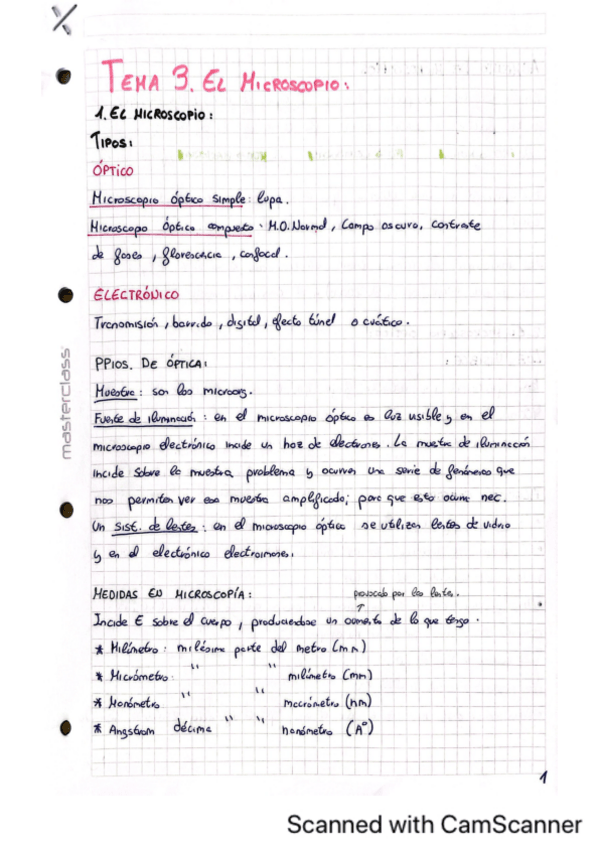 TEMA 3. EL MICROSCOPIO:
1. EL MICROSCOPIO:
TIPOS:
ÓPTICO
Microscopio óptico simple: lupa.
Microscopo óptico compuesto: M.O. Normal, Campo oscuro, contraste
de fases, florescencia, confocal.
ELECTRÓNICO
Transmisión, barrido, digital, efecto túnel o cuático.
PPIOS. DE ÓPTICA:
Muestra: son los microorg.
Fuente de iluminación: en el microscopio óptico es luz visible y en el
microscopio electrónico incide un haz de electrones. La muestra de iluminación
incide sobre la muestra problema y ocurren una serie de fenómenos que
nos permiten ver esa muestra amplificada; para que esto ocurra nec.
Un Sist. de lentes: en el microscopio óptico se utilizan lentes de vidrio
y en el electrónico electroimanes.
MEDIDAS EN MICROSCOPÍA: provocado por las lentes.
Incide E sobre el cuerpo, produciéndose un aumento de lo que tengo.
* Milímetro: milésima parte del metro (mm)
* Micrómetro: " " milímetro (mm)
* Nanómetro " " micrómetro (nm)
* Angstrom décima " " nanómetro (Aº)
1
masterclass
Scanned with CamScanner